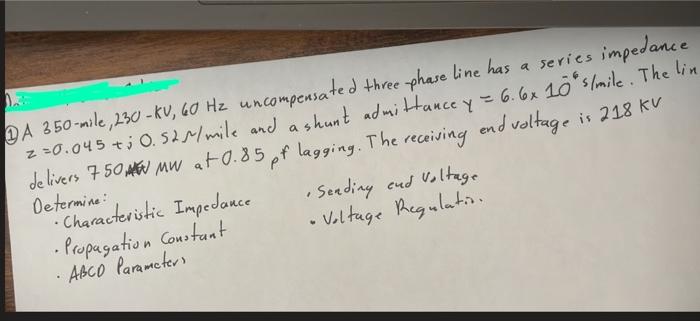 ① A 350-mile, 230-KV, 60 Hz uncompensated three-phase line has a series impedance
z = 0.045 + j 0.52 Ω/mile and a shunt admittance y = 6.6x 10⁻⁶ s/mile. The lin
delivers 750 MW at 0.85 pf lagging. The receiving end voltage is 218 KV
Determine:
· Characteristic Impedance
· Propagation Constant
· ABCD Parameters
· Sending end Voltage
· Voltage Regulation.